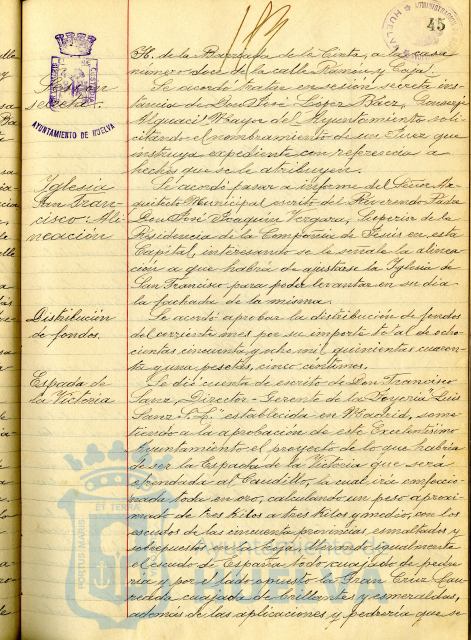 183
45
H. de la Barriada de la Cinta, a la casa
número doce de la calle Ramón y Cajal.
Sesión
secreta.
Se acordó tratar en sesión secreta ins-
tancia de Don José López Báez, Conserje
Alguacil Mayor del Ayuntamiento soli-
citando el nombramiento de un Juez que
instruya expediente con referencia a
hechos que se le atribuyen.
AYUNTAMIENTO DE HUELVA
Iglesia
San Fran-
cisco: Ali-
neación
Se acordó pasar a informe del Señor Ar-
quitecto Municipal escrito del Reverendo Padre
Don José Joaquín Vergara, Superior de la
Residencia de la Compañía de Jesús en esta
Capital, interesando se le señale la alinea-
ción a que habrá de ajustarse la Iglesia de
San Francisco para poder levantar en su día
la fachada de la misma.
Distribución
de fondos.
Se acordó aprobar la distribución de fondos
del corriente mes por su importe total de ocho-
cientas cincuenta y ocho mil, quinientas cuaren-
ta y una pesetas, cinco céntimos.
Espada de
la Victoria
Se dió cuenta de escrito de Don Francisco
Sanz, Director-Gerente de la Joyería "Luis
Sanz S.L." establecida en Madrid, some-
tiendo a la aprobación de este Excelentísimo
Ayuntamiento el proyecto de lo que habría
de ser la Espada de la Victoria que será
ofrendada al Caudillo, la cual iría confeccio-
nada toda en oro, calculando un peso aproxi-
mado de tres kilos a tres kilos y medio, con los
escudos de las cincuenta provincias esmaltados y
sobrepuestos en la vaina, llevando igualmente
el escudo de España todo cuajado de pedre-
ría y por el lado opuesto la Gran Cruz Lau-
reada cuajada de brillantes y esmeraldas,
además de las aplicaciones y pedrería que se
PORTUS MARIS
ET TERRÆ
Ayuntamiento de
HUELVA